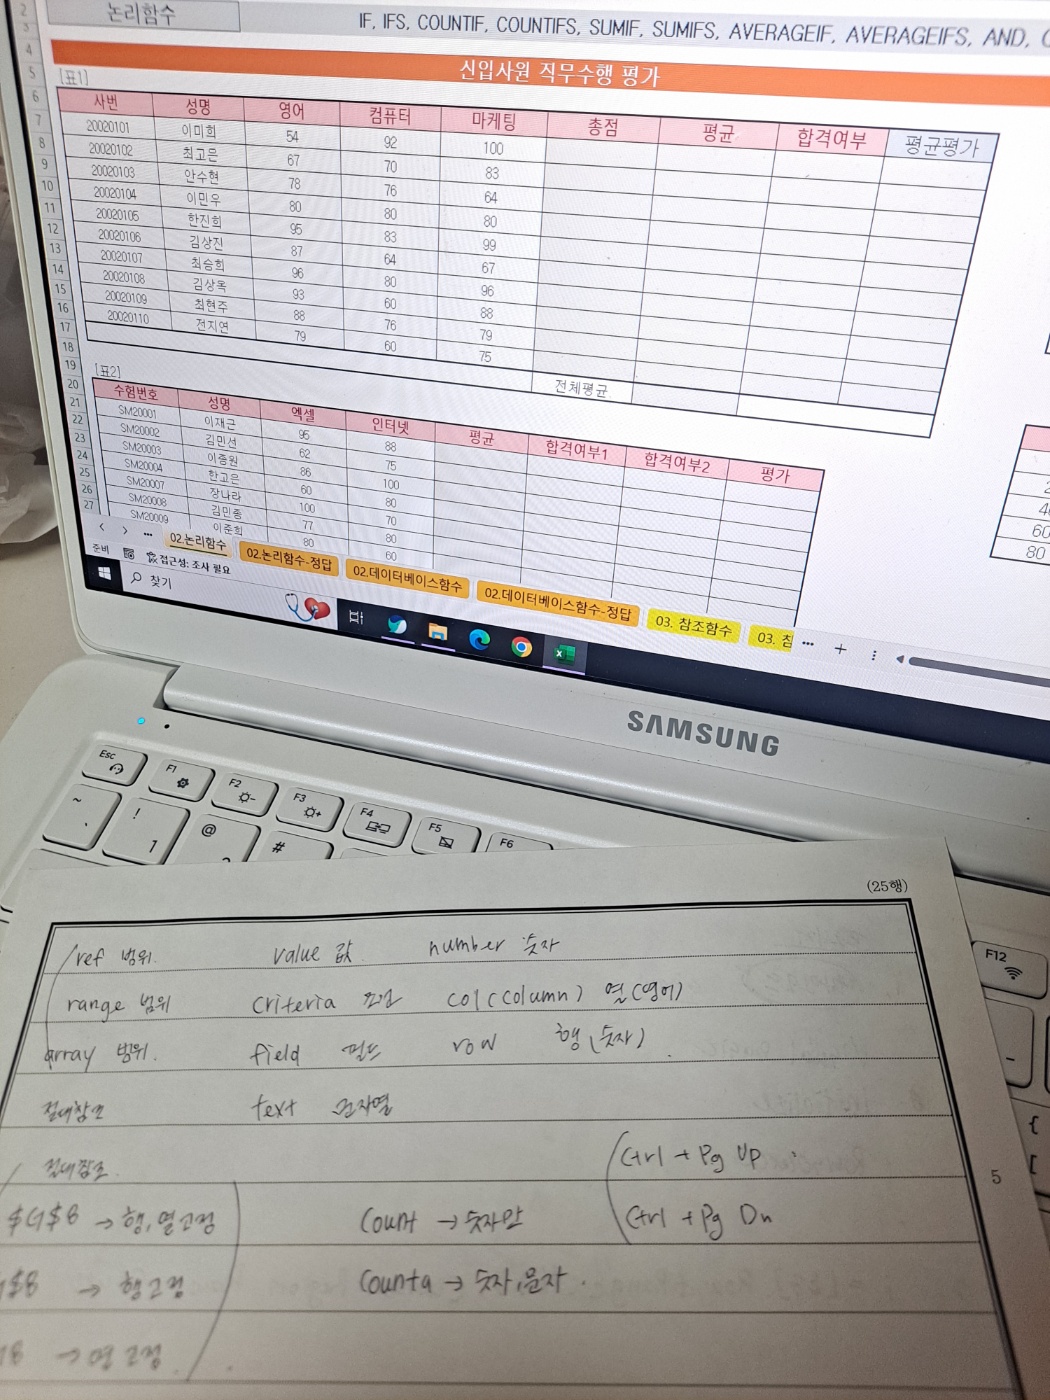 논리함수
IF, IFS, COUNTIF, COUNTIFS, SUMIF, SUMIFS, AVERAGEIF, AVERAGEIFS, AND,
신입사원 직무수행 평가
[표1]
사번 성명 영어 컴퓨터 마케팅 총점 평균 합격여부 평균평가
20020101 이미희 54 92 100
20020102 최고은 67 70 83
20020103 안수현 78 76 64
20020104 이민우 80 80 80
20020105 한진희 95 83 99
20020106 김상진 87 64 67
20020107 최승희 96 80 96
20020108 김상옥 93 60 88
20020109 최현주 88 76 79
20020110 전지연 79 60 75
전체평균
[표2]
수험번호 성명 엑셀 인터넷 평균 합격여부1 합격여부2 평가
SM20001 이재근 95 88
SM20002 김민선 62 75
SM20003 이종원 86 100
SM20004 한고은 60 80
SM20007 장나라 100 70
SM20008 김민종 77 80
SM20009 이준희 80 60
60
80
2
3
4
5
6
7
8
9
10
11
12
13
14
15
16
17
18
19
20
21
22
23
24
25
26
27
02.논리함수 02.논리함수-정답 02.데이터베이스함수 02.데이터베이스함수-정답 03. 참조함수 03. 참
준비 접근성: 조사 필요
찾기
SAMSUNG
Esc F1 F2 F3 F4 F5 F6
~ ! 1 @ #
F12
(25행)
ref 범위 value 값 number 숫자
range 범위 criteria 조건 col(column) 열(영어)
array 범위 field 필드 row 행(숫자)
절대참조 text 문자열
절대참조 Ctrl + Pg Up
5
$G$8 → 행,열고정 Count → 숫자만 Ctrl + Pg Dn
$8 → 행고정 Counta → 숫자,문자
8 → 열고정